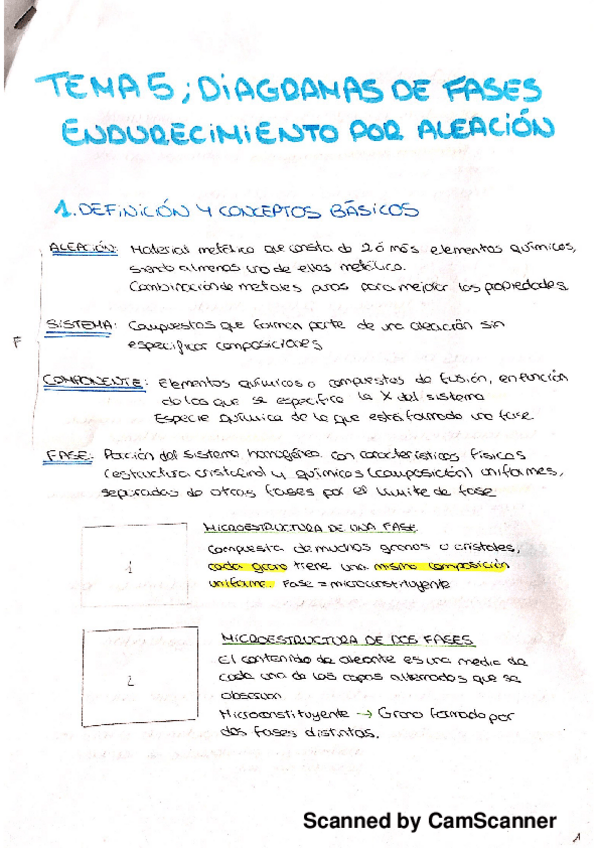 TEMA 5; DIAGRAMAS DE FASES
ENDURECIMIENTO POR ALEACIÓN
1. DEFINICIÓN Y CONCEPTOS BÁSICOS
ALEACIÓN: Material metálico que consta de 2 ó más elementos químicos,
siendo al menos uno de ellos metálico.
Combinación de metales puros para mejorar las propiedades.
SISTEMA: Compuestos que forman parte de una aleación sin
F
especificar composiciones
COMPONENTE: Elementos químicos o compuestos de fusión, en función
de los que se especifica la X del sistema
Especie química de la que está formado una fase.
FASE: Porción del sistema homogénea con características físicas
(estructura cristalina) y químicas (composición) uniformes,
separadas de otras fases por el límite de fase
MICROESTRUCTURA DE UNA FASE
Compuesta de muchos granos o cristales,
1
cada grano tiene una misma composición
uniforme. Fase = microconstituyente
MICROESTRUCTURA DE DOS FASES
El contenido de aleante es una media de
2
cada una de las capas alternadas que se
observan
Microconstituyente → Grano formado por
dos fases distintas.
Scanned by CamScanner
1